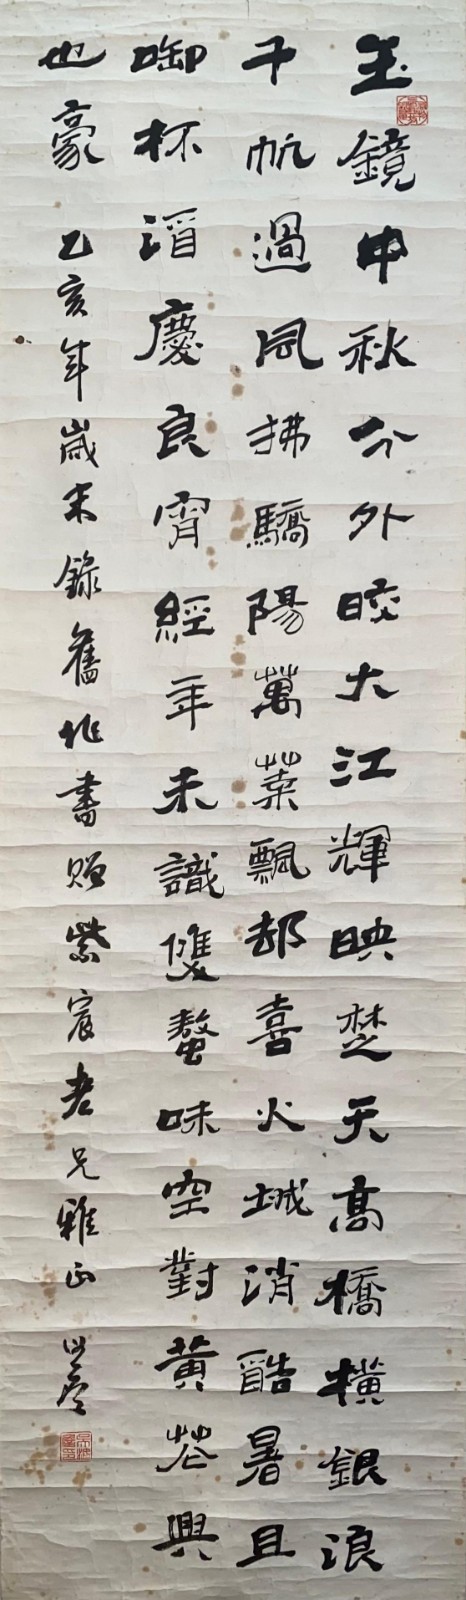 玉鏡中秋分外晈大江輝映楚天高橋橫銀浪
千帆過風拂驕陽萬葉飄却喜火城消酷暑且
啣杯酒慶良宵經年未識雙螯味空對黃花興
也豪 乙亥年歲末錄舊作書贈紫宸老兄雅正